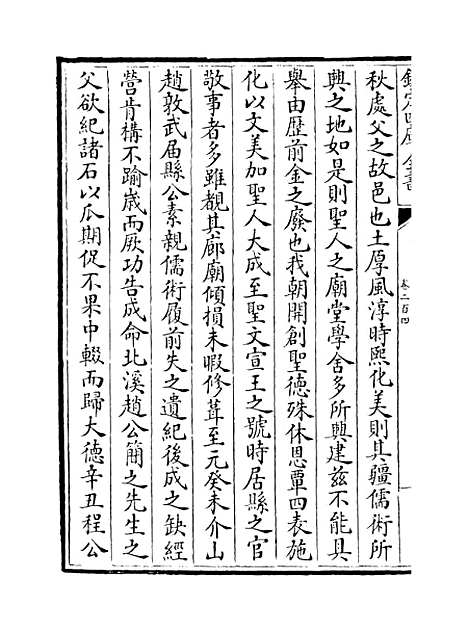 欽定四庫全書
卷二百四
秋處父之故邑也土厚風淳時熙化美則其疆儒術所
興之地如是則聖人之廟堂學舍多所興建兹不能具
舉由歴前金之廢也我朝開創聖德殊休恩覃四表施
化以文美加聖人大成至聖文宣王之號時居縣之官
敬事者多雖覩其廊廟傾損未暇修葺至元癸未介山
趙敦武届縣公素親儒術履前失之遺紀後成之缺經
營肯構不踰嵗而厥功告成命北溪趙公簡之先生之
父欲紀諸石以瓜期促不果中輟而歸大德辛丑程公